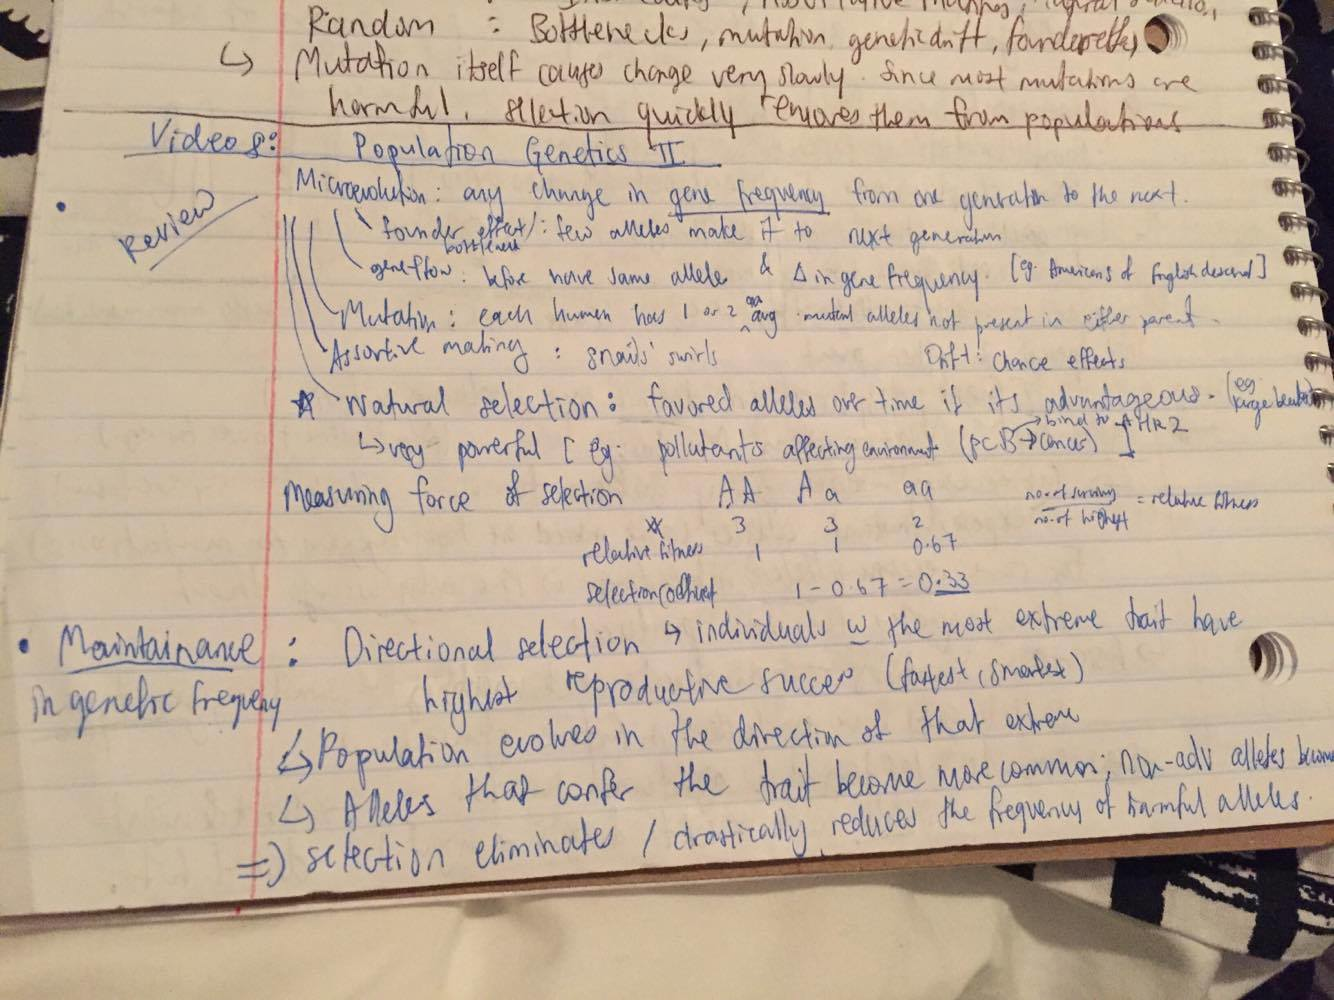 Random : Bottlenecks, mutation, genetic drift, founder effects
↳ Mutation itself causes change very slowly. Since most mutations are
harmful, selection quickly removes them from populations
Video 8: Population Genetics II
Review
Microevolution: any change in gene frequency from one generation to the next.
founder effect/bottleneck: few alleles make it to next generation
gene flow: before have same allele & Δ in gene frequency. [eg. Americans of English descend]
Mutation: each human has 1 or 2 avg mutant alleles not present in either parent.
Assortive mating : snails' swirls Drift: Chance effects
☆ Natural selection: favored alleles over time if its advantageous. (eg. large beaks)
↳ very powerful [eg. pollutants affecting environment (PCB → cancer) ] → bind to AHR2
Measuring force of selection AA Aa aa no. of surviving / no. of highest = relative fitness
☆ 3 3 2
relative fitness 1 1 0.67
selection coefficient 1 - 0.67 = 0.33
• Maintainance : Directional selection ↳ individuals w the most extreme trait have
in genetic frequency highest reproductive success (fastest, smartest)
↳ Population evolves in the direction of that extreme
↳ Alleles that confer the trait become more common; non-adv alleles become
=) selection eliminates / drastically reduces the frequency of harmful alleles.